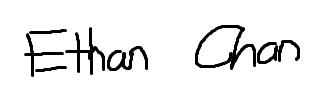 Ethan Chan